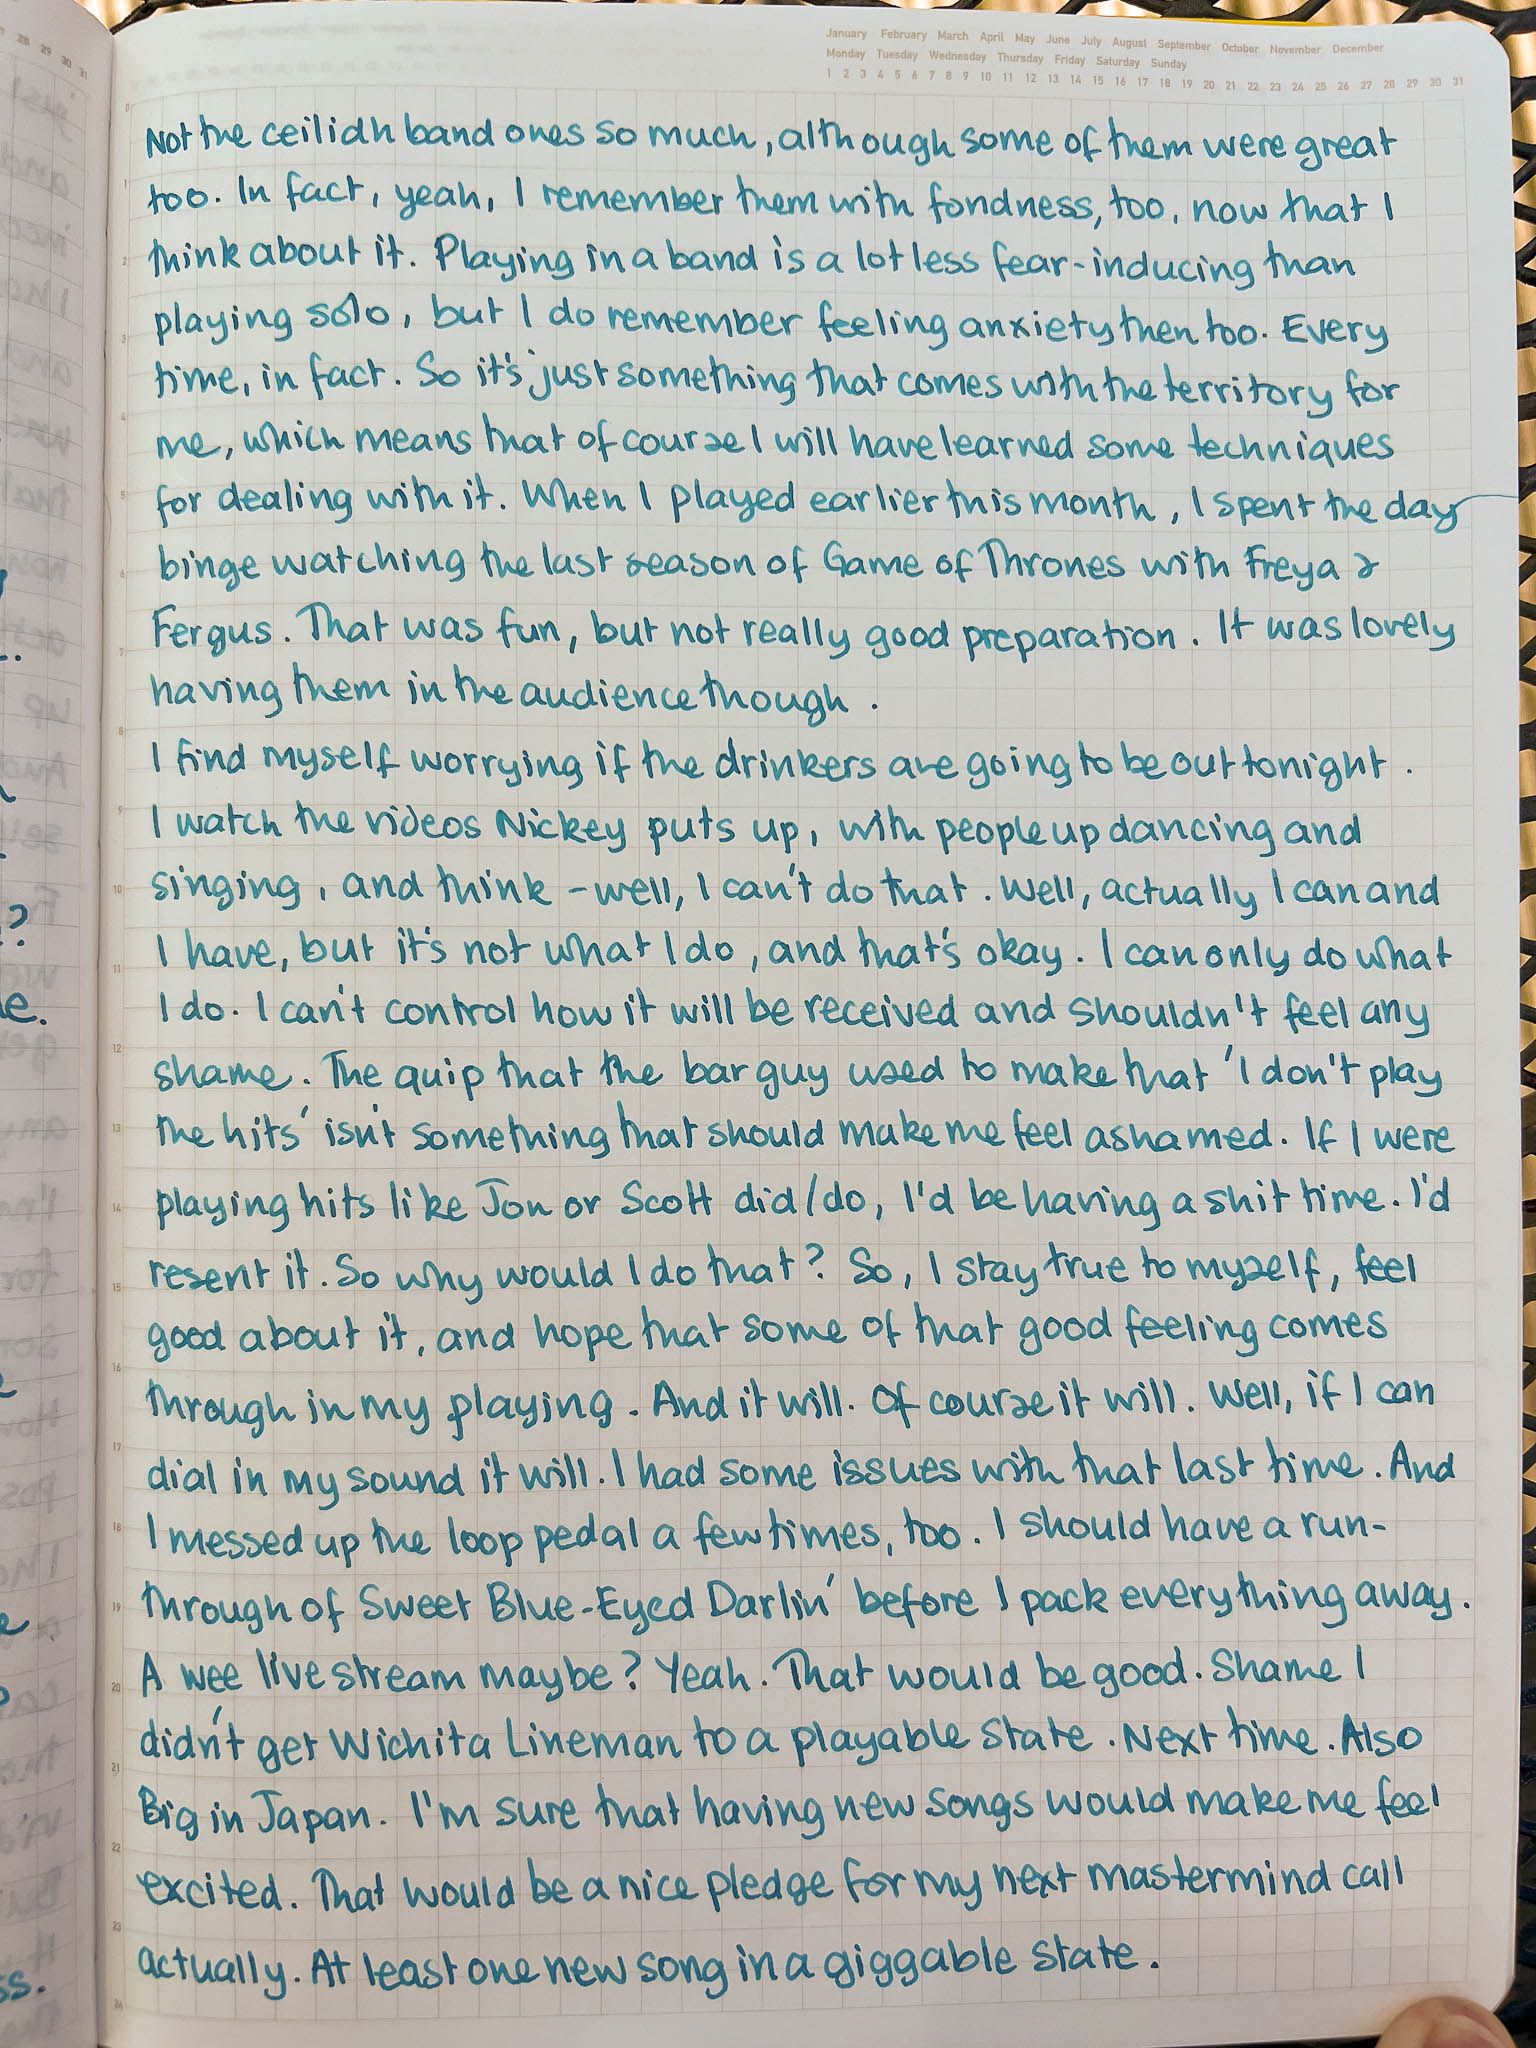 January February March April May June July August September October November December
Monday Tuesday Wednesday Thursday Friday Saturday Sunday
1 2 3 4 5 6 7 8 9 10 11 12 13 14 15 16 17 18 19 20 21 22 23 24 25 26 27 28 29 30 31
Not the ceilidh band ones so much, although some of them were great
too. In fact, yeah, I remember them with fondness, too, now that I
think about it. Playing in a band is a lot less fear-inducing than
playing solo, but I do remember feeling anxiety then too. Every
time, in fact. So it's just something that comes with the territory for
me, which means that of course I will have learned some techniques
for dealing with it. When I played earlier this month, I spent the day
binge watching the last season of Game of Thrones with Freya &
Fergus. That was fun, but not really good preparation. It was lovely
having them in the audience though.
I find myself worrying if the drinkers are going to be out tonight.
I watch the videos Nickey puts up, with people up dancing and
singing, and think - well, I can't do that. Well, actually I can and
I have, but it's not what I do, and that's okay. I can only do what
I do. I can't control how it will be received and shouldn't feel any
shame. The quip that the bar guy used to make that 'I don't play
the hits' isn't something that should make me feel ashamed. If I were
playing hits like Jon or Scott did/do, I'd be having a shit time. I'd
resent it. So why would I do that? So, I stay true to myself, feel
good about it, and hope that some of that good feeling comes
through in my playing. And it will. Of course it will. Well, if I can
dial in my sound it will. I had some issues with that last time. And
I messed up the loop pedal a few times, too. I should have a run-
through of Sweet Blue-Eyed Darlin' before I pack everything away.
A wee live stream maybe? Yeah. That would be good. Shame I
didn't get Wichita Lineman to a playable state. Next time. Also
Big in Japan. I'm sure that having new songs would make me feel
excited. That would be a nice pledge for my next mastermind call
actually. At least one new song in a giggable state.